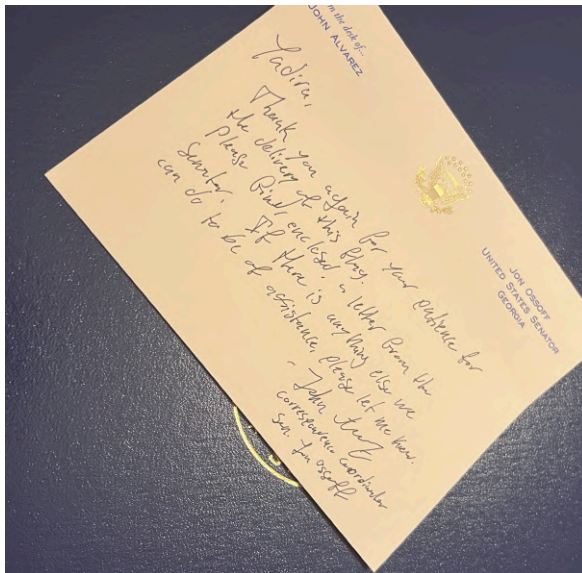 From the desk of...
JOHN ALVAREZ
JON OSSOFF
UNITED STATES SENATOR
GEORGIA
Yadira,
Thank you again for your patience for
the delivery of this flag.
Please find enclosed a letter from the
Senator. If there is anything else we
can do to be of assistance, please let me know.
- John
correspondence coordinator
Sen. Jon Ossoff